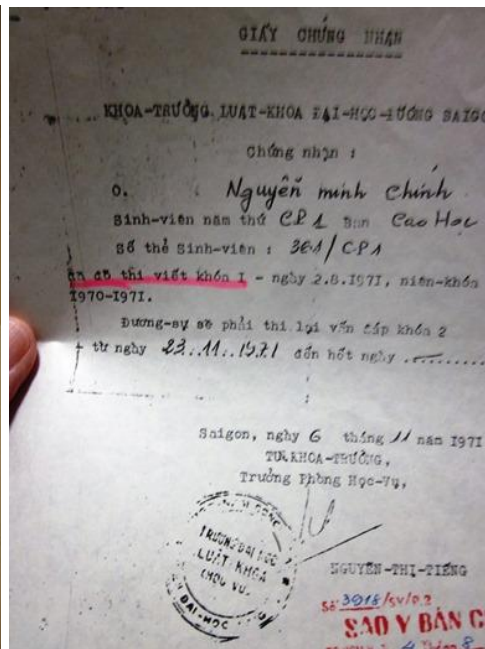 GIẤY CHỨNG NHẬN
KHOA-TRƯỞNG LUẬT-KHOA ĐẠI-HỌC-ĐƯỜNG SAIGO
Chứng nhận :
O. Nguyễn minh Chính
Sinh-viên năm thứ CP1 Ban Cao Học
Số thẻ Sinh-viên : 361/CP1
ận đã thi viết khóa I - ngày 2.8.1971, niên-khóa
1970-1971.
Đương-sự sẽ phải thi lại vấn đáp khóa 2
từ ngày 23.11.1971 đến hết ngày
Saigon, ngày 6 tháng 11 năm 1971
TUN.KHOA-TRƯỞNG,
Trưởng Phòng Học-Vụ,
TRƯỜNG ĐẠI HỌC
LUẬT KHOA
(HỌC VỤ)
NGUYỄN-THỊ-TIẾNG
Số 3918/SV/P.2
SAO Y BẢN C